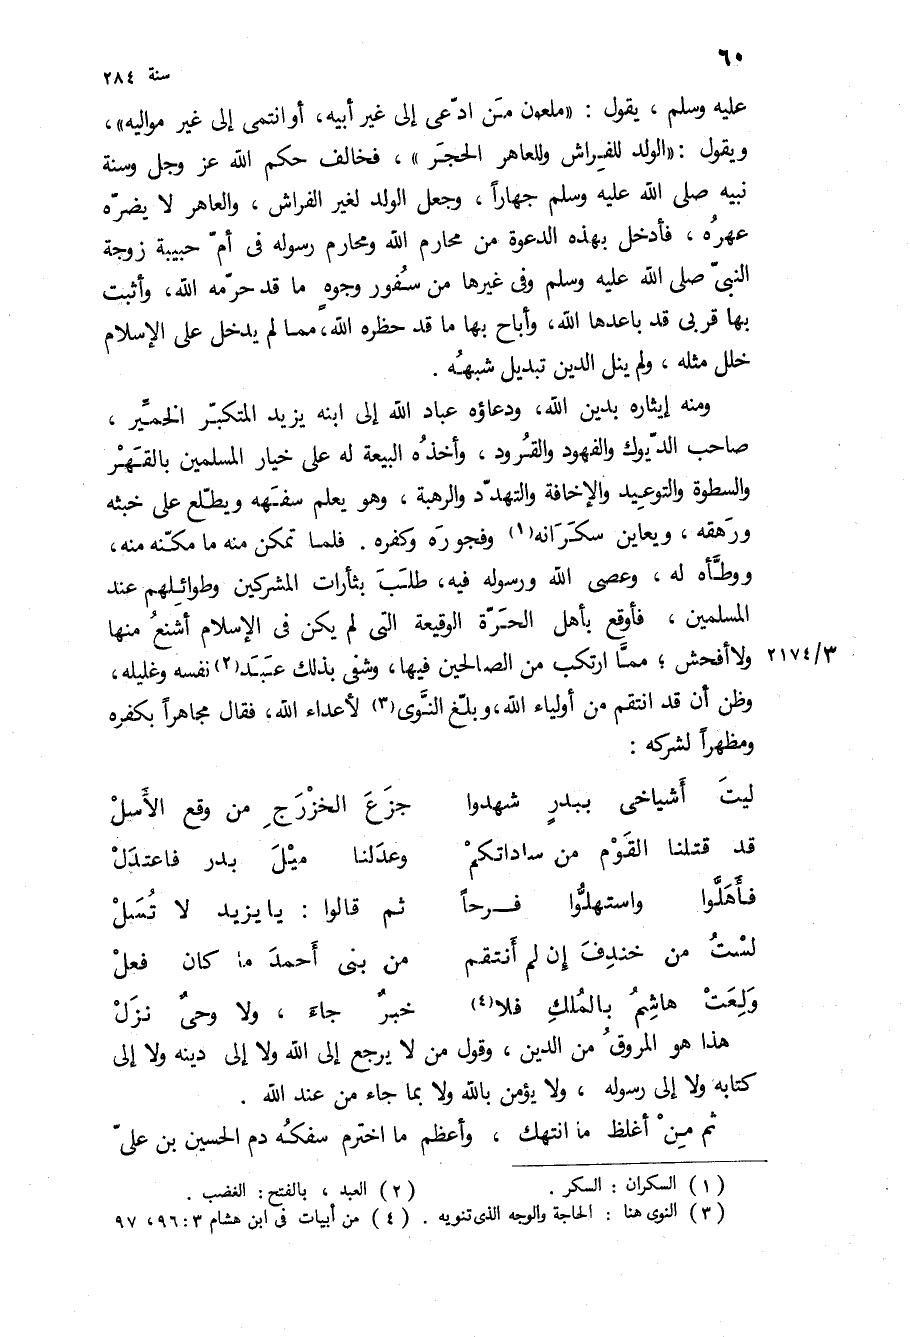 ٦٠
سنة ٢٨٤
عليه وسلم ، يقول : «ملعون مَن ادّعى إلى غير أبيه، أو انتمى إلى غير مواليه»،
ويقول :«الولد للفِراش وللعاهر الحجَر » ، فخالف حكم الله عز وجل وسنة
نبيه صلى الله عليه وسلم جهاراً ، وجعل الولد لغير الفراش ، والعاهر لا يضرّه
عهرُه ، فأدخل بهذه الدعوة من محارم الله ومحارم رسوله فى أمّ حبيبة زوجة
النبىّ صلى الله عليه وسلم وفى غيرها من سُفور وجوهٍ ما قد حرّمه الله، وأثبت
بها قربى قد باعدها الله، وأباح بها ما قد حظره الله،مما لم يدخل على الإسلام
خلل مثله ، ولم ينل الدين تبديل شبهُه .
ومنه إيثاره بدين الله، ودعاؤه عباد الله إلى ابنه يزيد المتكبّر الخمَّير ،
صاحب الدّيوك والفهود والقُرود ، وأخذُه البيعة له على خيار المسلمين بالقَهْر
والسطوة والتوعِيد والإخافة والتهدّد والرهبة ، وهو يعلم سفَهه ويطّلع على خبثه
ورَهقه ، ويعاين سكَرَانه(١) وفجورَه وكفره . فلما تمكن منه ما مكّنه منه،
ووطَّأه له ، وعصى الله ورسوله فيه، طلبَ بثأرات المشركين وطوائلهم عند
المسلمين ، فأوقع بأهل الحَرّة الوقيعة التى لم يكن فى الإسلام أشنعُ منها
ولا أفحش ؛ ممَّا ارتكب من الصالحين فيها، وشفى بذلك عبَدَ(٢) نفسه وغليله، ٢١٧٤/٣
وظن أن قد انتقم من أولياء الله،وبلّغ النَّوى(٣) لأعداء الله، فقال مجاهراً بكفره
ومظهراً لشركه :
ليتَ أشياخى ببدرٍ شهدوا جزَعَ الخزْرَجِ من وقع الأَسلْ
قد قتلنا القَوْم من ساداتكمْ وعدَلنا ميْلَ بدر فاعتدَلْ
فأَهَلُّوا واستهلُّوا فرحاً ثم قالوا : يا يزيد لا تُسَلْ
لسْتُ من خندِفَ إن لم أنتقم من بنى أَحمدَ ما كان فعلْ
وَلِعَتْ هاشِمُ بالمُلكِ فلا(٤) خبرٌ جاءَ ، ولا وحىٌ نزَلْ
هذا هو المروقُ من الدين ، وقول من لا يرجع إلى الله ولا إلى دينه ولا إلى
كتابه ولا إلى رسوله ، ولا يؤمن بالله ولا بما جاء من عند الله .
ثم مِنْ أغلظ ما انتهك ، وأعظم ما اخترم سفكُه دم الحسين بن علىّ
(١) السكران : السكر . (٢) العبد ، بالفتح: الغضب .
(٣) النوى هنا : الحاجة والوجه الذى تنويه . (٤) من أبيات فى ابن هشام ٣ :٩٦، ٩٧